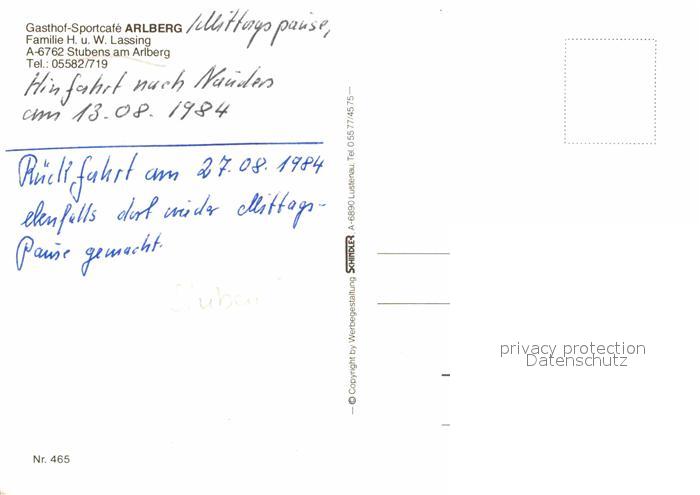 Gasthof-Sportcafé ARLBERG Mittagspause,
Familie H. u. W. Lassing
A-6762 Stubens am Arlberg
Tel.: 05582/719
Hinfahrt nach Nauders
am 13.08.1984
Rückfahrt am 27.08.1984
ebenfalls dort wieder Mittags-
Pause gemacht.
Stuben
© Copyright by Werbegestaltung SCHINDLER A-6890 Lustenau, Tel. 0 55 77/45 75
privacy protection
Datenschutz
Nr. 465